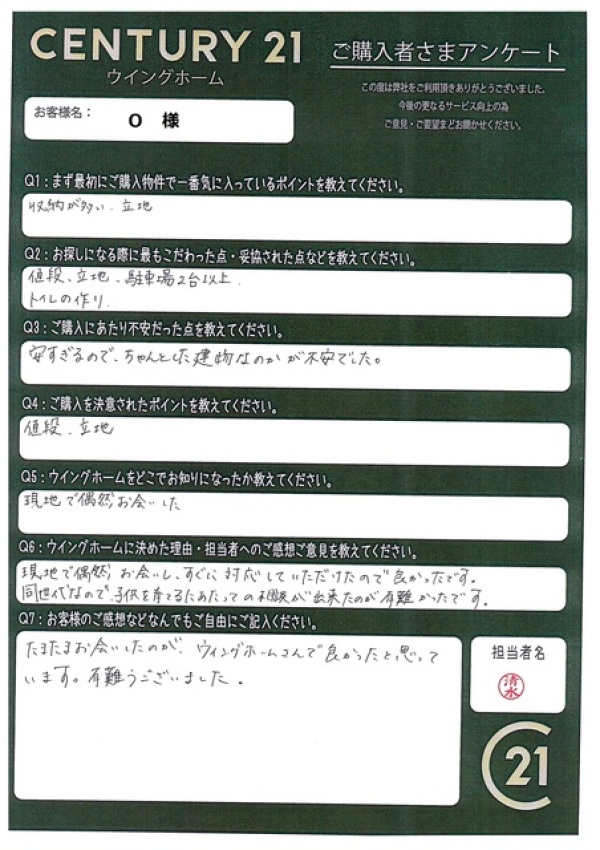 CENTURY 21
ウイングホーム
ご購入者さまアンケート
この度は弊社をご利用頂きありがとうございました。
今後の更なるサービス向上の為
ご意見・ご要望までお聞かせください。
お客様名:
O 様
Q1:まず最初にご購入物件で一番気に入っているポイントを教えてください。
収納が多い、立地
Q2:お探しになる際に最もこだわった点・妥協された点などを教えてください。
値段、立地、駐車場2台以上.
トイレの作り.
Q3:ご購入にあたり不安だった点を教えてください。
安すぎるので、ちゃんとした建物なのかが不安でした。
Q4:ご購入を決意されたポイントを教えてください。
値段、立地
Q5:ウイングホームをどこでお知りになったか教えてください。
現地で偶然お会いした
Q6:ウイングホームに決めた理由・担当者へのご感想ご意見を教えてください。
現地で偶然お会いし、すぐに対応していただけたので良かったです。
同世代なので、子供を育てるにあたっての相談が出来たのが有難かったです。
Q7:お客様のご感想などなんでもご自由にご記入ください。
たまたまお会いしたのが、ウイングホームさんで良かったと思って
います。有難うございました。
担当者名
清水
C21